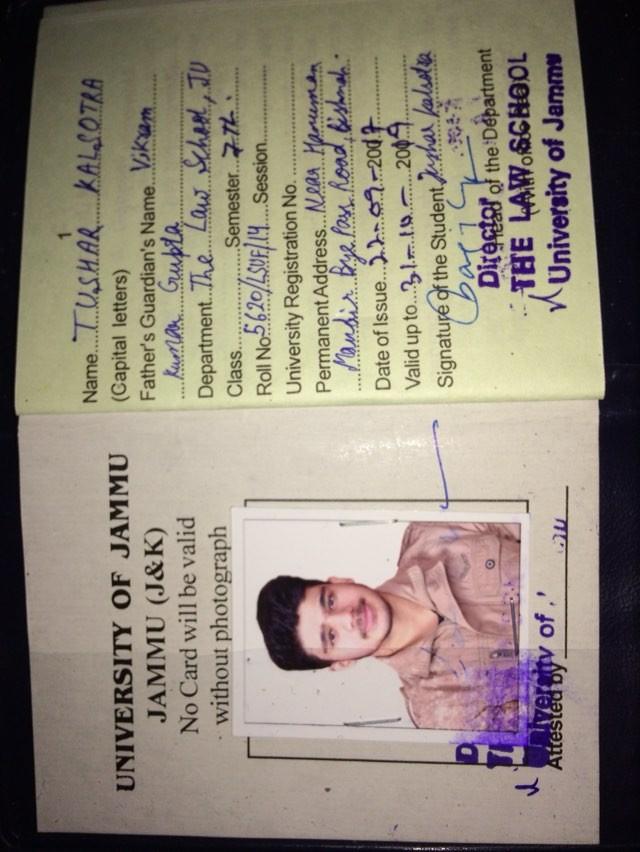 UNIVERSITY OF JAMMU
JAMMU (J&K)
No Card will be valid
without photograph
University of
Attested by
1
Name....TUSHAR KALSOTRA
(Capital letters)
Father's Guardian's Name Vikram
Kumar Gupta
Department..The Law School, JU
Class..............Semester...7th.
Roll No 5620/LSUF/14 Session
University Registration No.
Permanent Address Near Hanuman
Mandir Bye Pass Road, Bishnah.
Date of Issue 22-09-2017
Valid up to 31-10-2019
Signature of the Student Tushar Kalsotra
Head of the Department
Director
THE LAW SCHOOL
University of Jammu